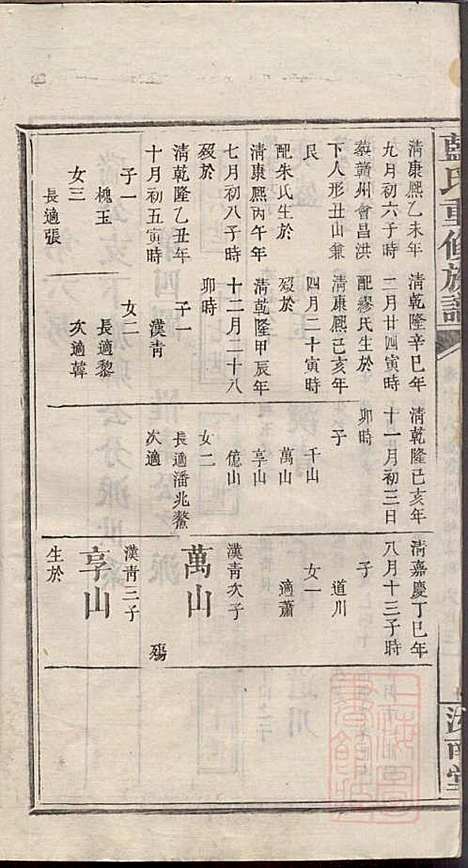 藍氏重修族譜
清康熙乙未年
九月初六子時
葬贛州會昌洪
下人形丑山兼
艮
配朱氏生於
清康熙丙午年
七月初八子時
歿於
清乾隆乙丑年
十月初五寅時
子一
槐玉
女三
長適張
清乾隆辛巳年
二月廿四寅時
配繆氏生於
清康熙己亥年
四月二十寅時
歿於
清乾隆甲辰年
十二月二十八
卯時
子一
漢青
女二
長適黎
次適韓
清乾隆己亥年
十一月初三日
卯時
子
千山
萬山
享山
億山
女二
長適潘兆鰲
次適
清嘉慶丁巳年
八月十三子時
子
道川
女一
適蕭
漢青次子
萬山
殤
漢青三子
享山
生於
汝南堂